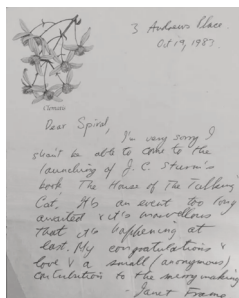 3 Andrews Place
Oct 19, 1987.
Clematis
Dear Spiral,
I'm very sorry I
shan't be able to come to the
launching of J. C. Sturm's
book The House of The Talking
Cat. It's an event too long
awaited & it's marvellous
that it's happening at
last. My congratulations &
love & a small (anonymous)
contribution to the merrymaking
- Janet Frame